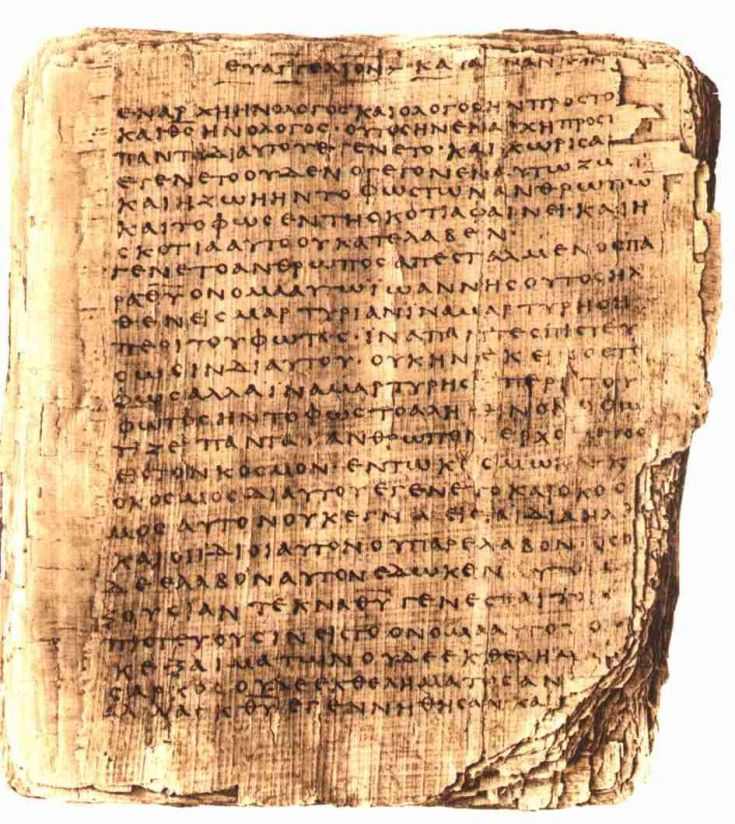 ΕΥΑΓΓΕΛΙΟΝ ΚΑΤΑ
ΕΝ ΑΡΧΗ ΗΝ Ο ΛΟΓΟϹ ΚΑΙ Ο ΛΟΓΟϹ ΗΝ ΠΡΟϹ ΤΟ
ΚΑΙ ΘϹ ΗΝ Ο ΛΟΓΟϹ · ΟΥΤΟϹ ΗΝ ΕΝ ΑΡΧΗ ΠΡΟϹ
ΠΑΝΤΑ ΔΙ ΑΥΤΟΥ ΕΓΕΝΕΤΟ · ΚΑΙ ΧΩΡΙϹ Α
ΕΓΕΝΕΤΟ ΟΥΔΕΝ Ο ΓΕΓΟΝΕΝ ΕΝ ΑΥΤΩ ΖΩ
ΚΑΙ Η ΖΩΗ ΗΝ ΤΟ ΦΩϹ ΤΩΝ ΑΝΘΡΩΠΩ
ΚΑΙ ΤΟ ΦΩϹ ΕΝ ΤΗ ϹΚΟΤΙΑ ΦΑΙΝΕΙ · ΚΑΙ Η
ϹΚΟΤΙΑ ΑΥΤΟ ΟΥ ΚΑΤΕΛΑΒΕΝ ·
ΓΕΝΕΤΟ ΑΝΘΡΩΠΟϹ ΑΠΕϹΤΑΛΜΕΝΟϹ ΠΑ
ΡΑ ΘΥ ΟΝΟΜΑ ΑΥΤΩ ΙΩΑΝΝΗϹ ΟΥΤΟϹ ΗΛ
ΘΕΝ ΕΙϹ ΜΑΡΤΥΡΙΑΝ ΙΝΑ ΜΑΡΤΥΡΗϹΗ
ΠΕΡΙ ΤΟΥ ΦΩΤΟϹ · ΙΝΑ ΠΑΝΤΕϹ ΠΙϹΤΕΥ
ϹΩϹΙΝ ΔΙ ΑΥΤΟΥ · ΟΥΚ ΗΝ ΕΚΕΙΝΟϹ ΤΟ
ΦΩϹ ΑΛΛΑ ΙΝΑ ΜΑΡΤΥΡΗϹΗ ΠΕΡΙ ΤΟΥ
ΦΩΤΟϹ ΗΝ ΤΟ ΦΩϹ ΤΟ ΑΛΗΘΙΝΟΝ Ο ΦΩ
ΤΙΖΕΙ ΠΑΝΤΑ ΑΝΘΡΩΠΟΝ ΕΡΧΟΜΕΝΟΝ
ΕΙϹ ΤΟΝ ΚΟϹΜΟΝ · ΕΝ ΤΩ ΚΟϹΜΩ ΗΝ Κ
Ο ΚΟϹΜΟϹ ΔΙ ΑΥΤΟΥ ΕΓΕΝΕΤΟ ΚΑΙ Ο ΚΟϹ
ΜΟϹ ΑΥΤΟΝ ΟΥΚ ΕΓΝΩ ΕΙϹ ΤΑ ΙΔΙΑ ΗΛΘ
ΚΑΙ ΟΙ ΙΔΙΟΙ ΑΥΤΟΝ ΟΥ ΠΑΡΕΛΑΒΟΝ · ΟϹΟΙ
ΔΕ ΕΛΑΒΟΝ ΑΥΤΟΝ ΕΔΩΚΕΝ ΑΥΤΟΙϹ Ε
ΞΟΥϹΙΑΝ ΤΕΚΝΑ ΘΥ ΓΕΝΕϹΘΑΙ ΤΟΙϹ
ΠΙϹΤΕΥΟΥϹΙΝ ΕΙϹ ΤΟ ΟΝΟΜΑ ΑΥΤΟΥ Ο
ΚΕΞ ΑΙΜΑΤΩΝ ΟΥΔΕ ΕΚ ΘΕΛΗΜ
ϹΑΡΚΟϹ ΟΥΔΕ ΕΚ ΘΕΛΗΜΑΤΟϹ ΑΝ
ΑΛΛΑ ΕΚ ΘΥ ΕΓΕΝΝΗΘΗϹΑΝ ΚΑΙ